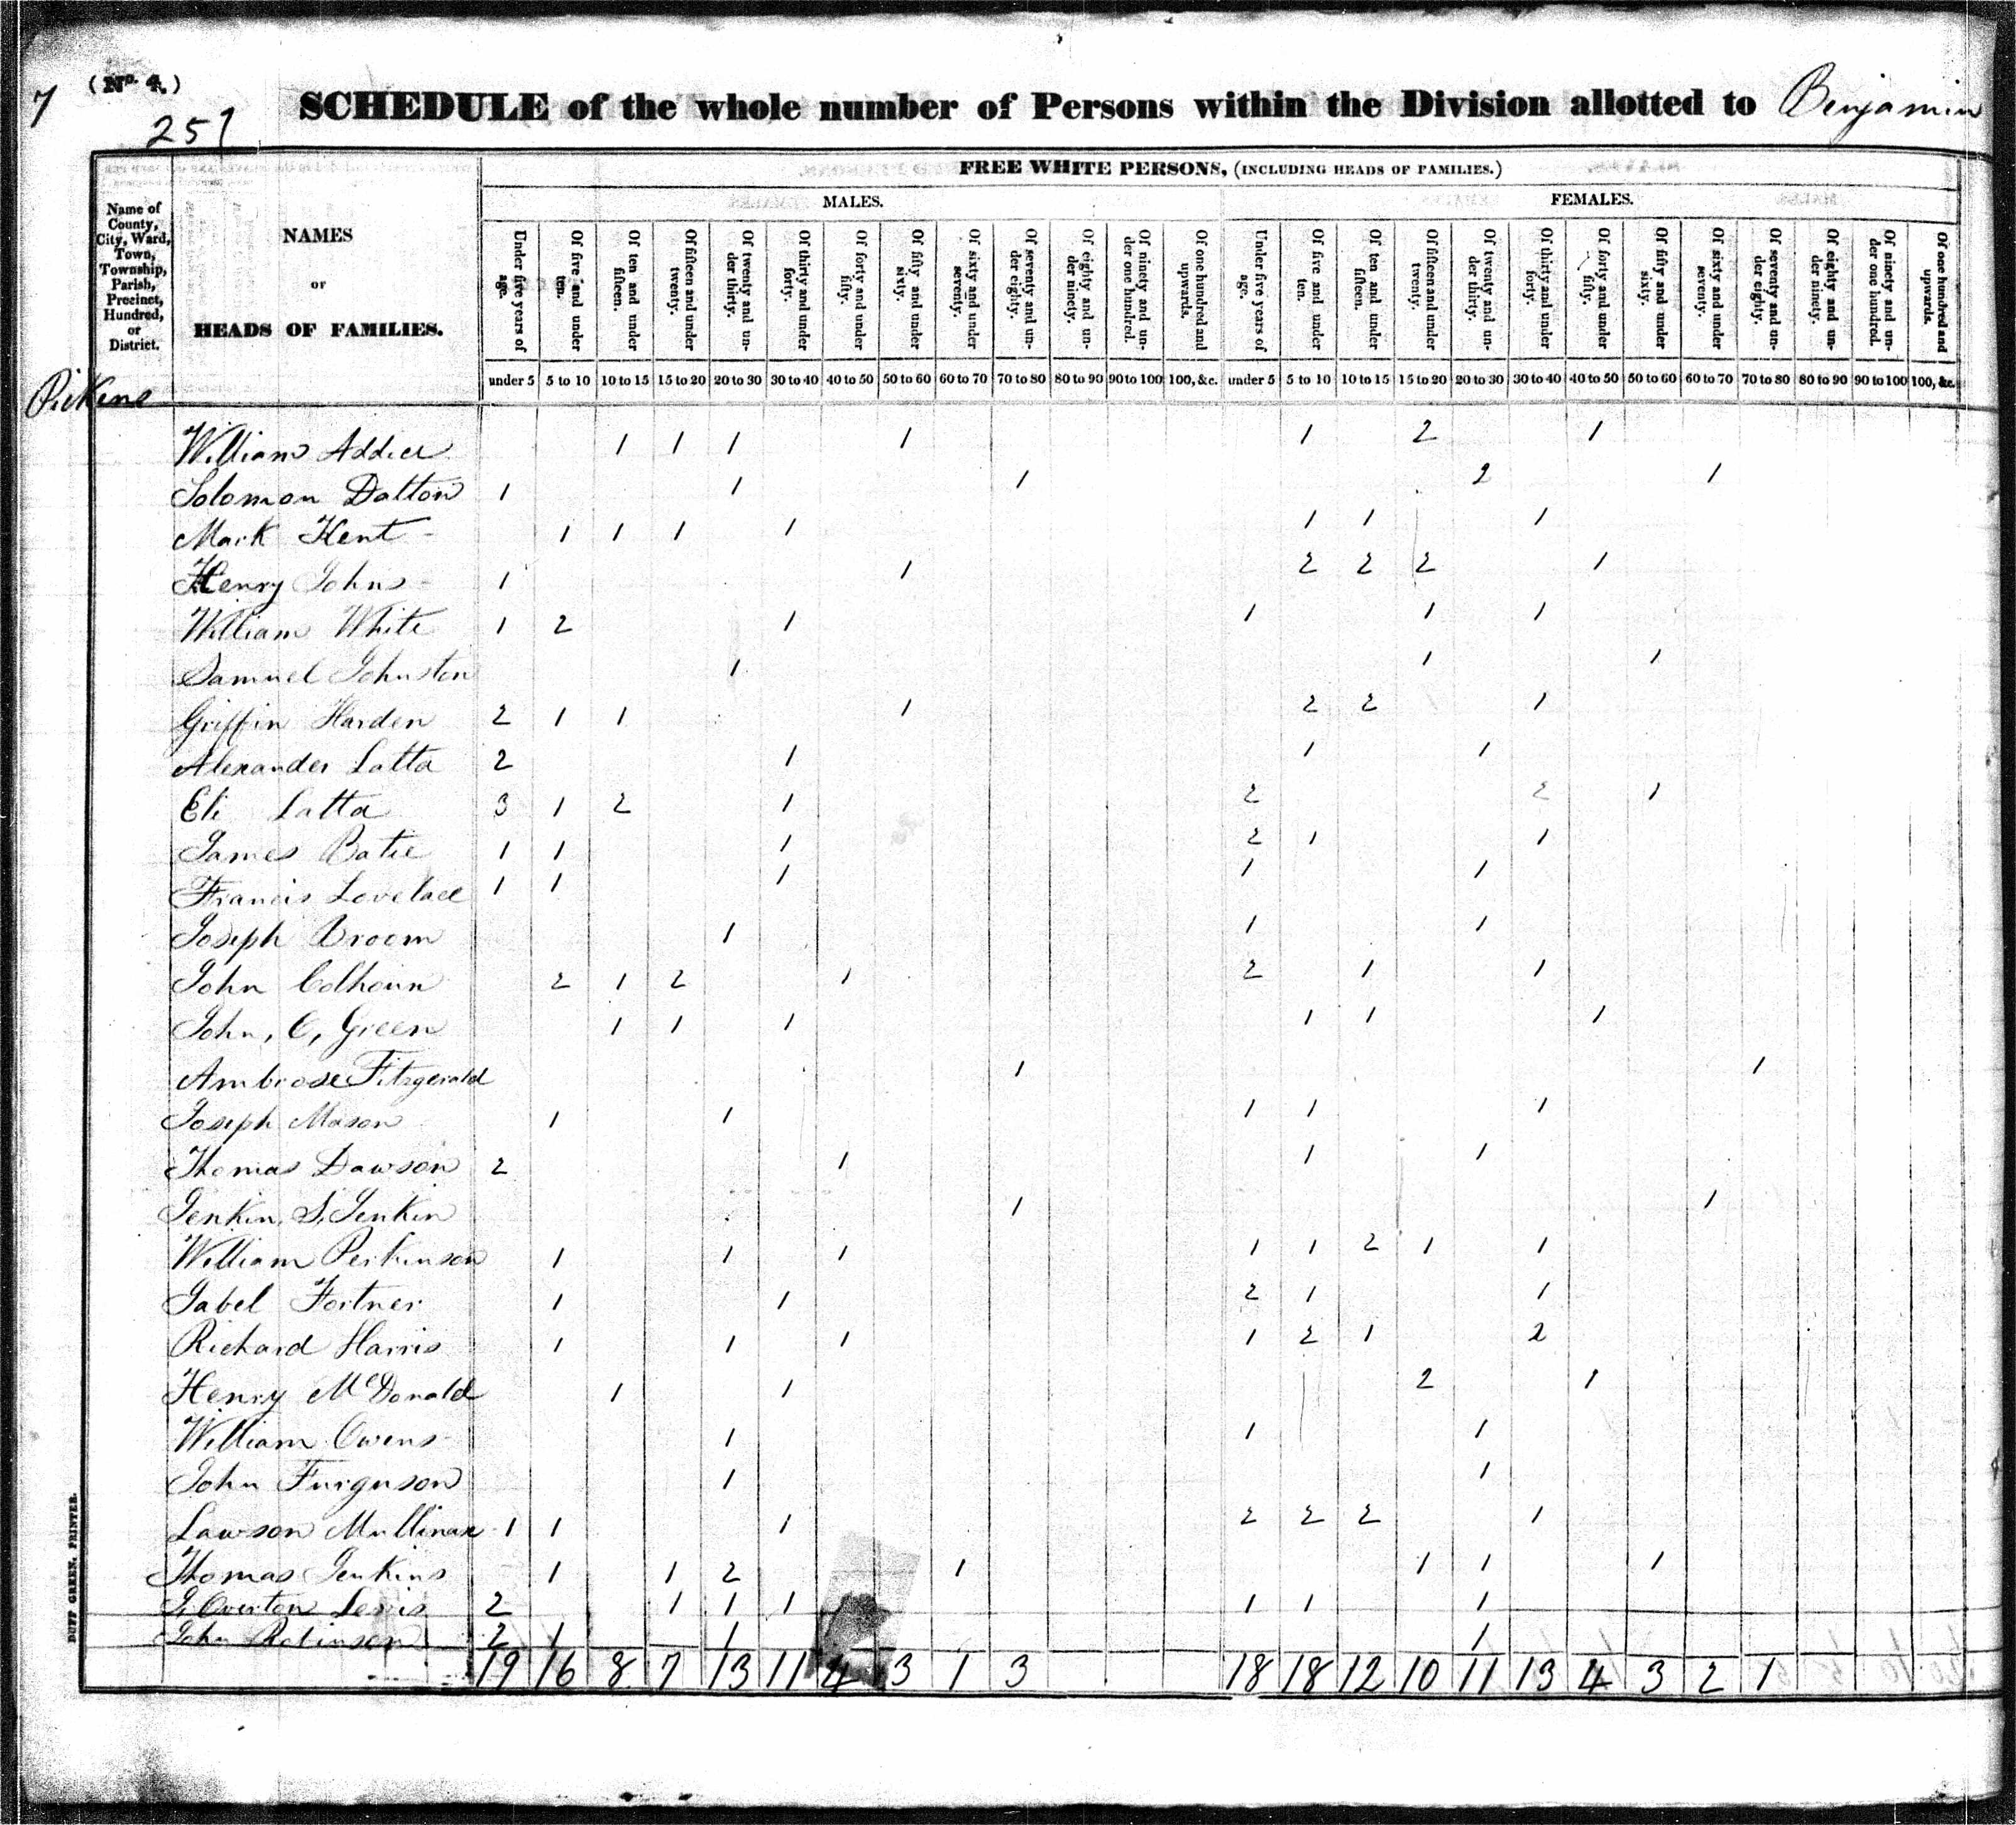 7 (No. 4.)
257
SCHEDULE of the whole number of Persons within the Division allotted to Benjamin
FREE WHITE PERSONS, (INCLUDING HEADS OF FAMILIES.)
MALES. FEMALES.
Name of County, City, Ward, Town, Township, Parish, Precinct, Hundred, or District.
NAMES
or
HEADS OF FAMILIES.
Under five years of age. Of five and under ten. Of ten and under fifteen. Of fifteen and under twenty. Of twenty and under thirty. Of thirty and under forty. Of forty and under fifty. Of fifty and under sixty. Of sixty and under seventy. Of seventy and under eighty. Of eighty and under ninety. Of ninety and under one hundred. Of one hundred and upwards. Under five years of age. Of five and under ten. Of ten and under fifteen. Of fifteen and under twenty. Of twenty and under thirty. Of thirty and under forty. Of forty and under fifty. Of fifty and under sixty. Of sixty and under seventy. Of seventy and under eighty. Of eighty and under ninety. Of ninety and under one hundred. Of one hundred and upwards.
under 5 5 to 10 10 to 15 15 to 20 20 to 30 30 to 40 40 to 50 50 to 60 60 to 70 70 to 80 80 to 90 90 to 100 100, &c. under 5 5 to 10 10 to 15 15 to 20 20 to 30 30 to 40 40 to 50 50 to 60 60 to 70 70 to 80 80 to 90 90 to 100 100, &c.
Pickens
William Addier 1 1 1 1 1 2 1
Solomon Dalton 1 1 1 2 1
Mark Kent 1 1 1 1 1 1 1
Henry Johns 1 1 2 2 2 1
William White 1 2 1 1 1 1
Samuel Johnston 1 1 1
Griffin Harden 2 1 1 1 2 2 1
Alexander Latta 2 1 1 1
Eli Latta 3 1 2 1 2 2 1
James Batie 1 1 1 2 1 1
Francis Lovelace 1 1 1 1 1
Joseph Broom 1 1 1
John Colhoun 2 1 2 1 2 1 1
John, C, Green 1 1 1 1 1 1
Ambrose Fitzgerald 1 1
Joseph Mason 1 1 1 1 1
Thomas Dawson 2 1 1 1
Jenkin, S, Jenkin 1 1
William Perkinson 1 1 1 1 1 2 1 1
Jabel Fortner 1 1 2 1 1
Richard Harris 1 1 1 1 2 1 2
Henry McDonald 1 1 2 1
William Owens 1 1 1
John Furguson 1 1
Lawson Mullinax 1 1 1 2 2 2 1
Thomas Jenkins 1 1 2 1 1 1 1
J, Overton Lewis 2 1 1 1 1 1 1
John Robinson 2 1 1 1
19 16 8 7 13 11 4 3 1 3 18 18 12 10 11 13 4 3 2 1
DUFF GREEN, PRINTER.